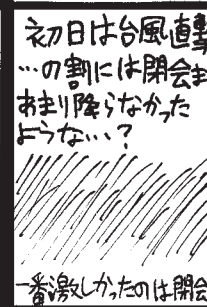 初日は台風直撃
…の割には閉会ま
あまり降らなかった
ような…?
一番激しかったのは閉会